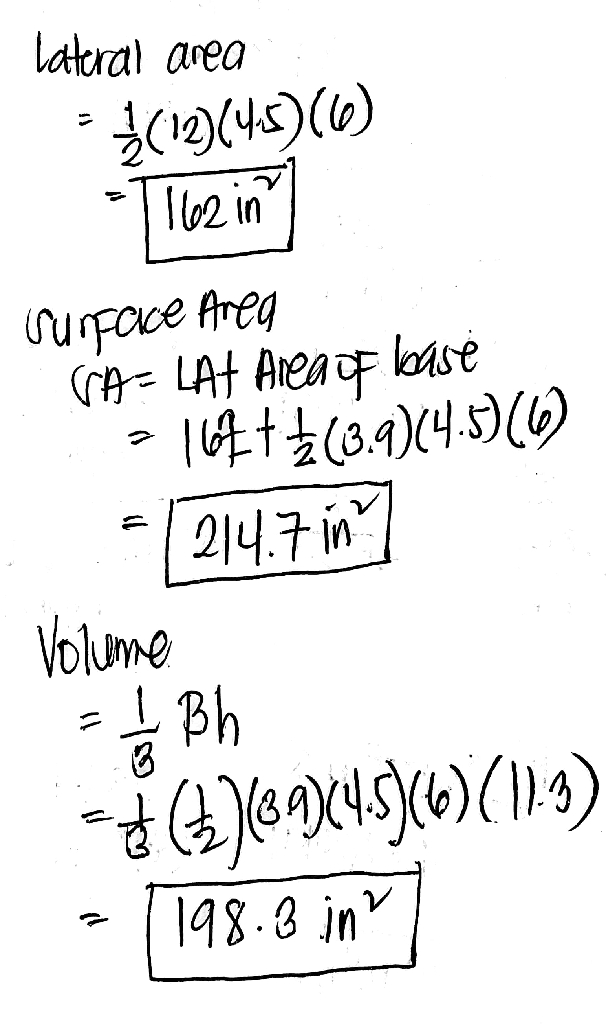 Lateral area
= 1/2 (12)(4.5)(6)
= 162 in²
Surface Area
SA = LA + Area of base
= 162 + 1/2 (3.9)(4.5)(6)
= 214.7 in²
Volume
= 1/3 Bh
= 1/3 (1/2)(3.9)(4.5)(6)(11.3)
= 198.3 in²